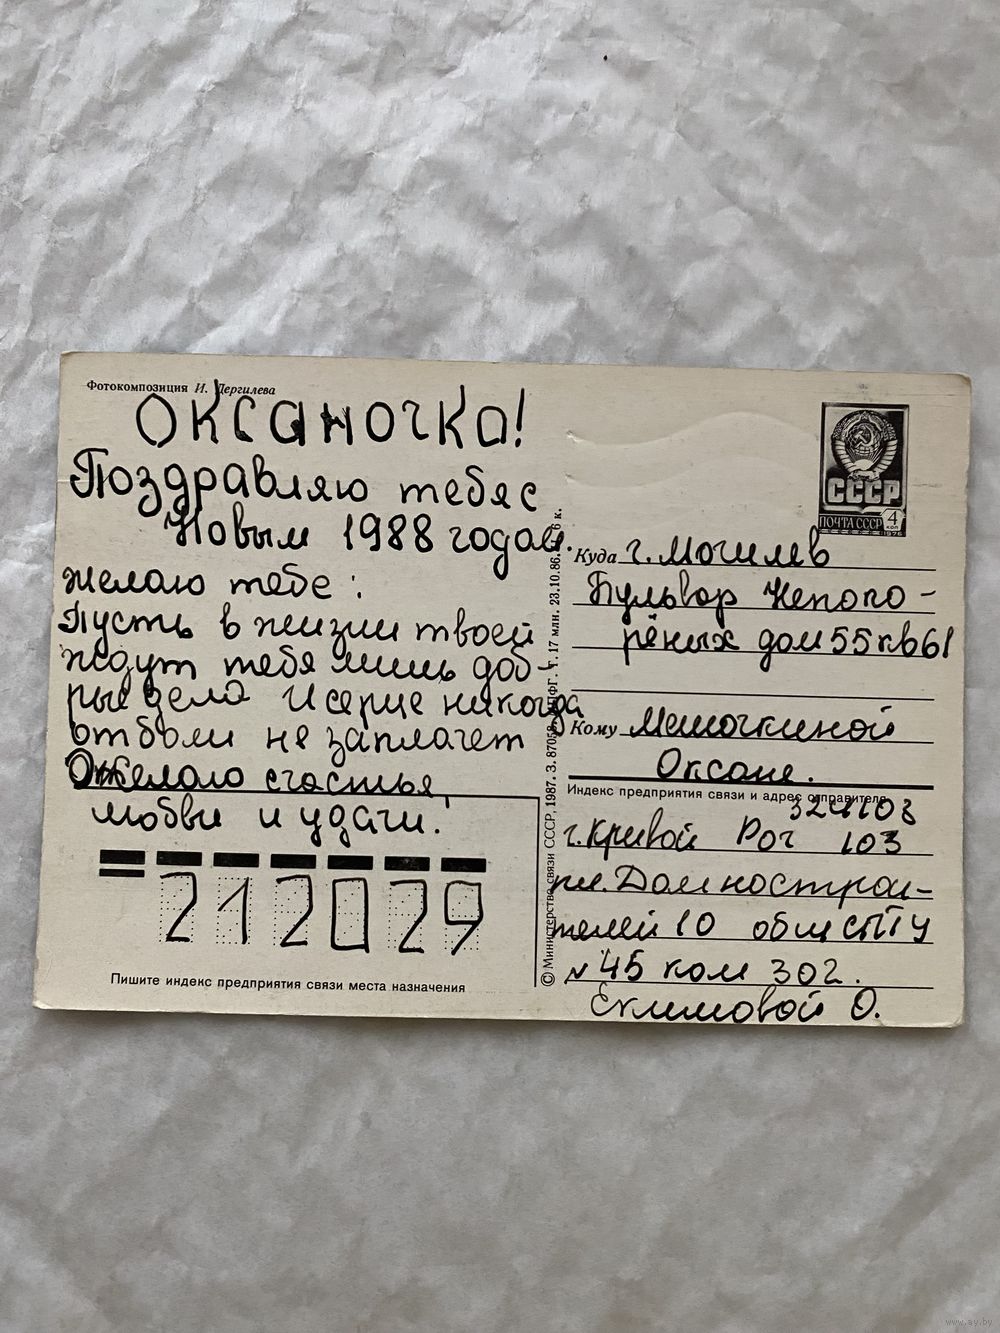 Фотокомпозиция И. Дергилева
Оксаночка!
Поздравляю тебя с
Новым 1988 годом.
желаю тебе:
Пусть в жизни твоей
ждут тебя лишь доб-
рые дела И серце никогда
от боли не заплачет
Желаю счастья,
любви и удачи.
212029
Пишите индекс предприятия связи места назначения
© Министерство связи СССР, 1987. З. 87058. ППФГ. Т. 17 млн. 23.10.86. 6 к.
СССР
ПОЧТА СССР 4 КОП
1976
Куда г. Могилев
Бульвар Непоко-
рёных дом 55 кв 61
Кому Мешочкиной
Оксане.
Индекс предприятия связи и адрес отправителя
324103
г. Кривой Рог 103
пл. Домнострои-
телей 10 общ СПТУ
N 45 ком 302.
Екимовой О.
www.ay.by